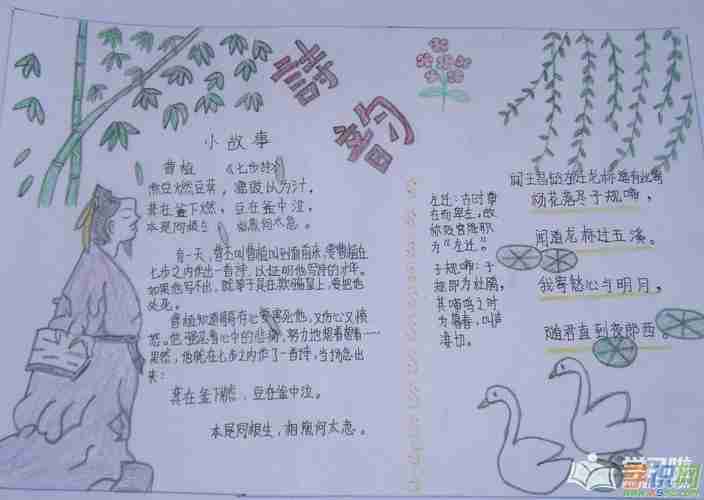 詩韵
小故事
曹植 《七步诗》
煮豆燃豆萁，漉豉以为汁。
其在釜下燃，豆在釜中泣。
本是同根生，相煎何太急。
有一天，曹丕叫曹植叫到面前来，要曹植在
七步之内作出一首诗，以证明他写诗的才华。
如果他写不出，就等于是在欺骗皇上，要把他
处死。
曹植知道哥哥有心要害死他，又伤心又愤
怒。他强忍着心中的悲痛，努力地想着想着……
果然，他就在七步之内作了一首诗，当场念出
来：
其在釜下燃，豆在釜中泣。
本是同根生，相煎何太急。
左迁：古时尊
右而卑左，故
称贬官降职
为“左迁”。
子规啼：子
规即为杜鹃，
其啼鸣之时
为暮春，叫声
凄切。
闻王昌龄左迁龙标遥有此寄
杨花落尽子规啼，
闻道龙标过五溪。
我寄愁心与明月，
随君直到夜郎西。
学习啦
学识网